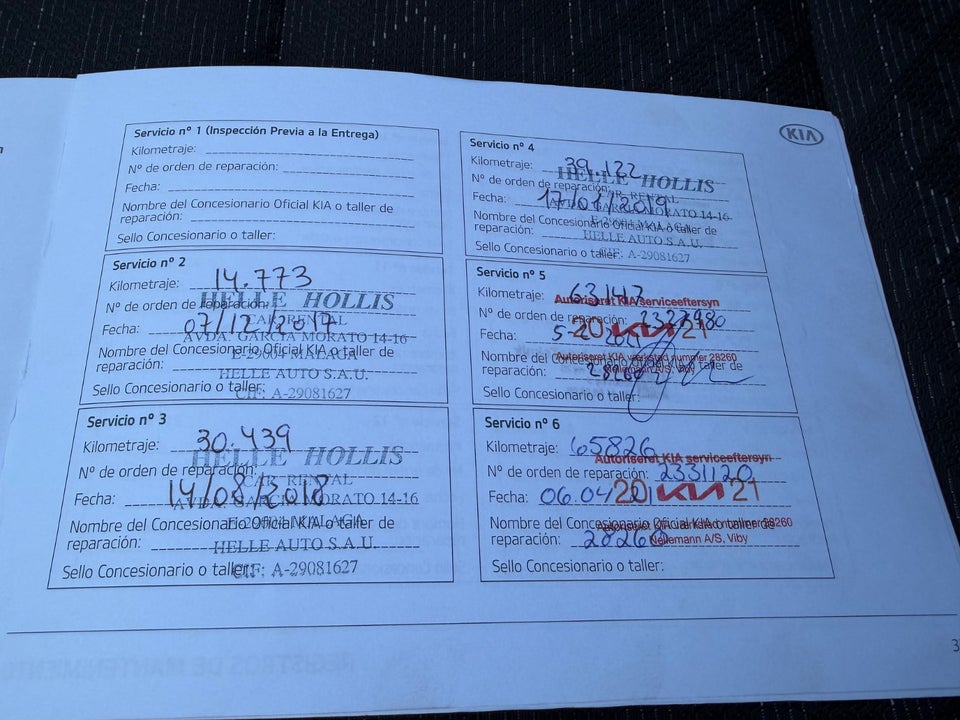 KIA
Servicio nº 1 (Inspección Previa a la Entrega)
Kilometraje:
Nº de orden de reparación:
Fecha:
Nombre del Concesionario Oficial KIA o taller de
reparación:
Sello Concesionario o taller:
Servicio nº 2
Kilometraje: 14.773
Nº de orden de reparación:
HELLE HOLLIS
CAR RENTAL
Fecha: 07/12/2017
AVDA. GARCIA MORATO 14-16
Nombre del Concesionario Oficial KIA o taller de
E-29004 MALAGA
reparación:
HELLE AUTO S.A.U.
Sello Concesionario o taller:
CIF: A-29081627
Servicio nº 3
Kilometraje: 30.439
Nº de orden de reparación:
HELLE HOLLIS
CAR RENTAL
Fecha: 14/08/2018
AVDA. GARCIA MORATO 14-16
Nombre del Concesionario Oficial KIA o taller de
E-29004 MALAGA
reparación:
HELLE AUTO S.A.U.
Sello Concesionario o taller:
CIF: A-29081627
Servicio nº 4
Kilometraje: 39.122
Nº de orden de reparación:
HELLE HOLLIS
CAR RENTAL
Fecha: 17/01/2019
AVDA. GARCIA MORATO 14-16
Nombre del Concesionario Oficial KIA o taller de
E-29004 MALAGA
reparación:
HELLE AUTO S.A.U.
Sello Concesionario o taller:
CIF: A-29081627
Servicio nº 5
Kilometraje: 63147
Autoriseret KIA serviceeftersyn
Nº de orden de reparación:
Fecha: 5-2
20 KIA 21
Nombre del Concesionario Oficial KIA o taller de
Autoriseret KIA værksted nummer 28260
Nellemann A/S, Viby
reparación: 28260
Sello Concesionario o taller:
Servicio nº 6
Kilometraje: 65826
Autoriseret KIA serviceeftersyn
Nº de orden de reparación: 2331120
Fecha: 06.04
20 KIA 21
Nombre del Concesionario Oficial KIA o taller de
28260
reparación: 28260
Nellemann A/S, Viby
Sello Concesionario o taller:
3
REGISTROS DE MANTENIMIENTO